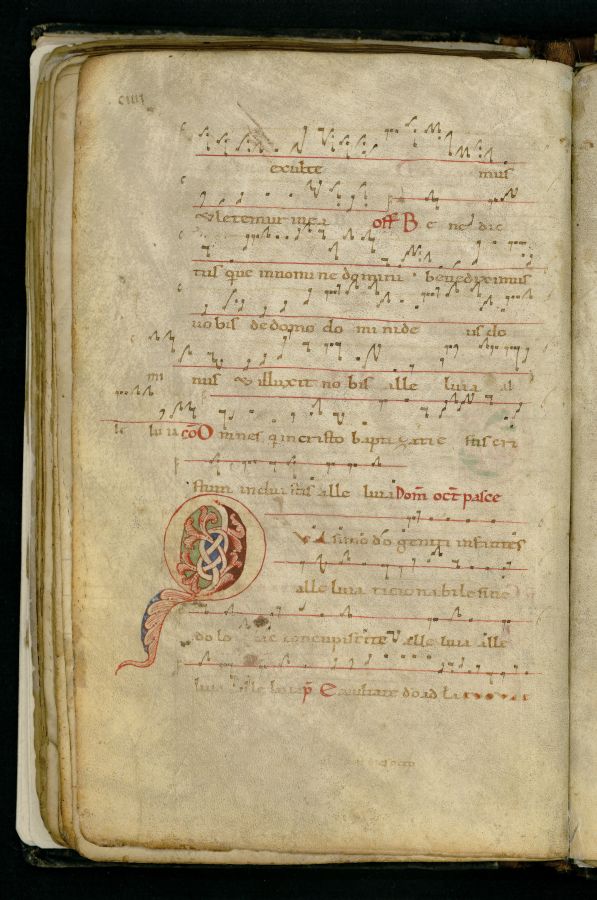 ciiii
exulte mus
& letemur in e a off Be ne dic
tus que innomi ne domini benediximus
uobis dedomo do mi ni de us do
nus & illuxit no bis alle luia al
le luia cō O mnes qui incristo baptizati e stis cri
stum induistis alle luia Dom̄ oct̄ pasce
Q ua simo do geniti infantes
alle luia racionabile sine
do lo lac concupiscite alle luia alle
luia alle luia p̄ Exultate do ad